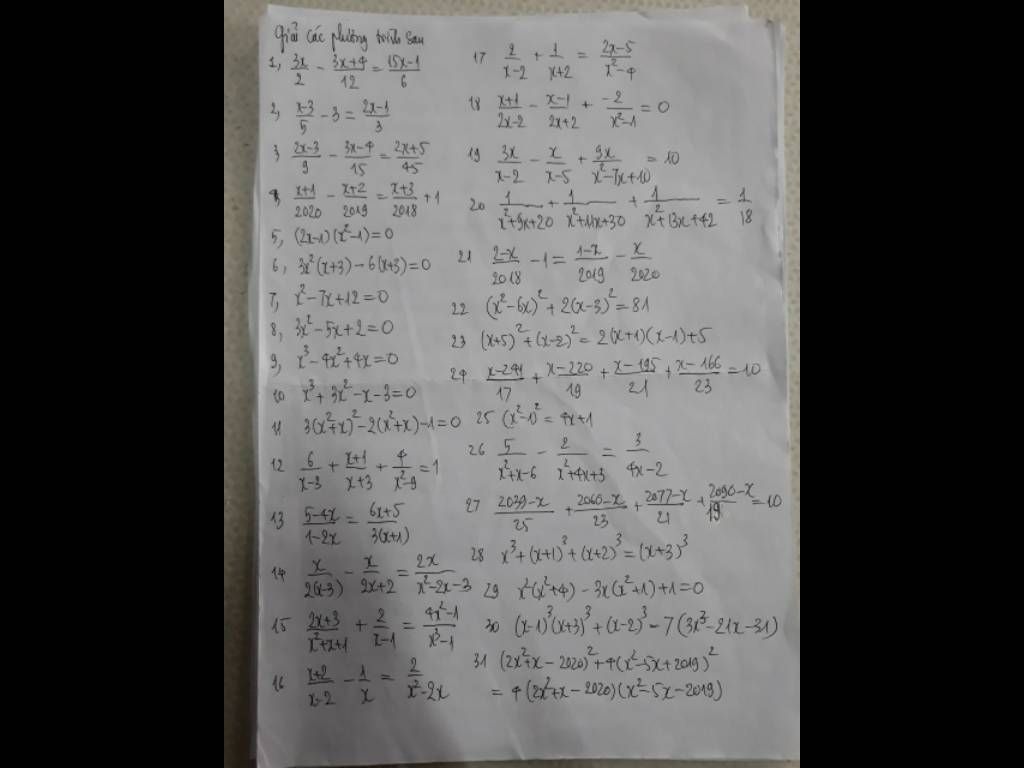 Giải các phương trình sau
1, 3x/2 - 3x+4/12 = 15x-1/6
2, x-3/5 - 3 = 2x-1/3
3 2x-3/9 - 3x-4/15 = 2x+5/45
4, x+1/2020 - x+2/2019 = x+3/2018 + 1
5, (2x-1)(x²-1)=0
6, 3x²(x+3) - 6(x+3)=0
7, x²-7x+12=0
8, 3x²-5x+2=0
9, x³-4x²+4x=0
10 x³+3x²-x-3=0
11 3(x²+x)²-2(x²+x)-1=0
12 6/x-3 + x+1/x+3 + 4/x²-9 = 1
13 5-4x/1-2x = 6x+5/3(x+1)
14 x/2(x-3) - x/2x+2 = 2x/x²-2x-3
15 2x+3/x²+x+1 + 2/x-1 = 4x²-1/x³-1
16 x+2/x-2 - 1/x = 2/x²-2x
17 2/x-2 + 1/x+2 = 2x-5/x²-4
18 x+1/2x-2 - x-1/2x+2 + -2/x²-1 = 0
19 3x/x-2 - x/x-5 + 9x/x²-7x+10 = 10
20 1/x²+9x+20 + 1/x²+11x+30 + 1/x²+13x+42 = 1/18
21 2-x/2018 - 1 = 1-x/2019 - x/2020
22 (x²-6x)² + 2(x-3)² = 81
23 (x+5)²+(x-2)² = 2(x+1)(x-1)+5
24 x-241/17 + x-220/19 + x-195/21 + x-166/23 = 10
25 (x²-1)² = 4x+1
26 5/x²+x-6 - 2/x²+4x+3 = 3/4x-2
27 2039-x/25 + 2060-x/23 + 2077-x/21 + 2090-x/19 = 10
28 x³+(x+1)³+(x+2)³=(x+3)³
29 x²(x²+4) - 3x(x²+1)+1=0
30 (x-1)³(x+3)³+(x-2)³-7(3x³-21x-31)
31 (2x²+x-2020)²+4(x²-5x+2019)²
= 4(2x²+x-2020)(x²-5x-2019)